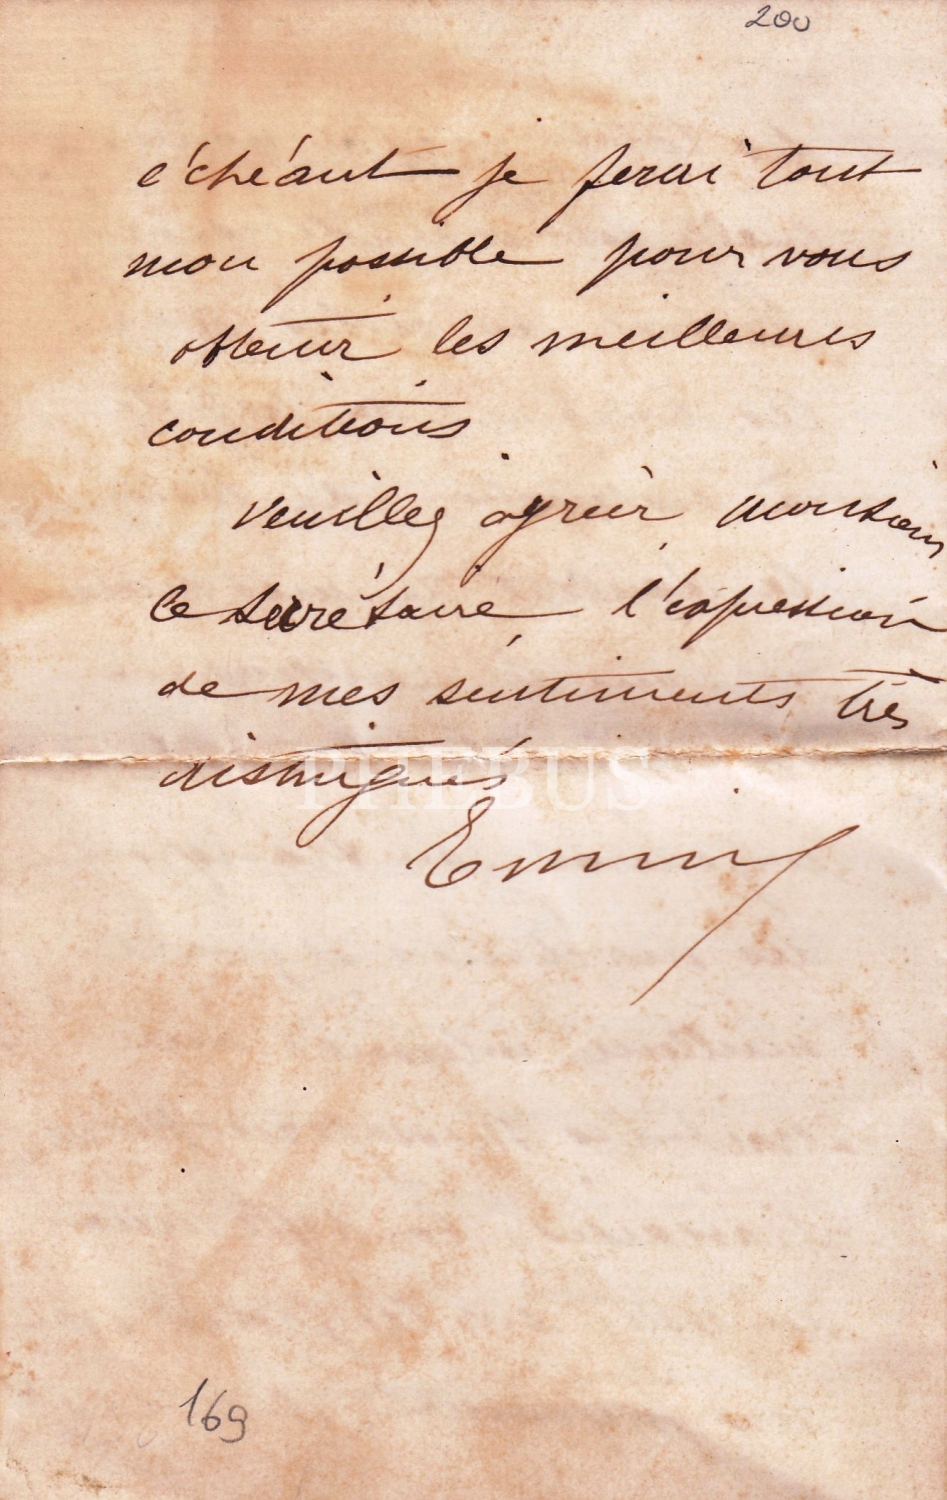 200
échéant je ferai tout
mon possible pour vous
obtenir les meilleures
conditions
Veuillez agréer monsieur
le secrétaire l'expression
de mes sentiments très
distingués
PHEBUS
169